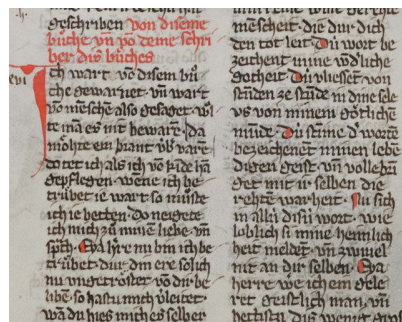 geschriben von diseme
bůche vn̄ vō deme schri
ber dis bůches
Ich wart vō disem bů
che gewarnet. vn̄ wart
vō mēsche also gesaget wl
te mā es nit bewarē. da
möhte ein brant vb͛ varē
do tet ich als ich vō kīde hā
gepflegen. wēne ich be
trübet ie wart so můste
ich ie betten. do neigete
ich mich zů mine liebe. vn̄
sp̄ch. Eya h͛re nu bin ich be
trübet. dur din ere solich
nu vngetröstet vō dir be
libē. so hastu mich v͛leitet.
wā du hies mich es selber
mēscheit. die dur dich
den tot leit. Dú wort be
zeichent mine wūd͛liche
gotheit. Dú vliessēt von
stūden ze stūde in dine sele
vs von minem götlichen
mūde. Dú stime d͛ worte
bezeichenet minen lebē
digen geist. vn̄ vollebrī
get mit ir selben die
rehtē warheit. Nu sich
in allē disū wort. wie
loblich si mine heimlich
heit meldet. vn̄ zwiuel
nit an dir selben. Eya
herre we ich ein gele
ret geistlich man. vn̄
hettistu dis